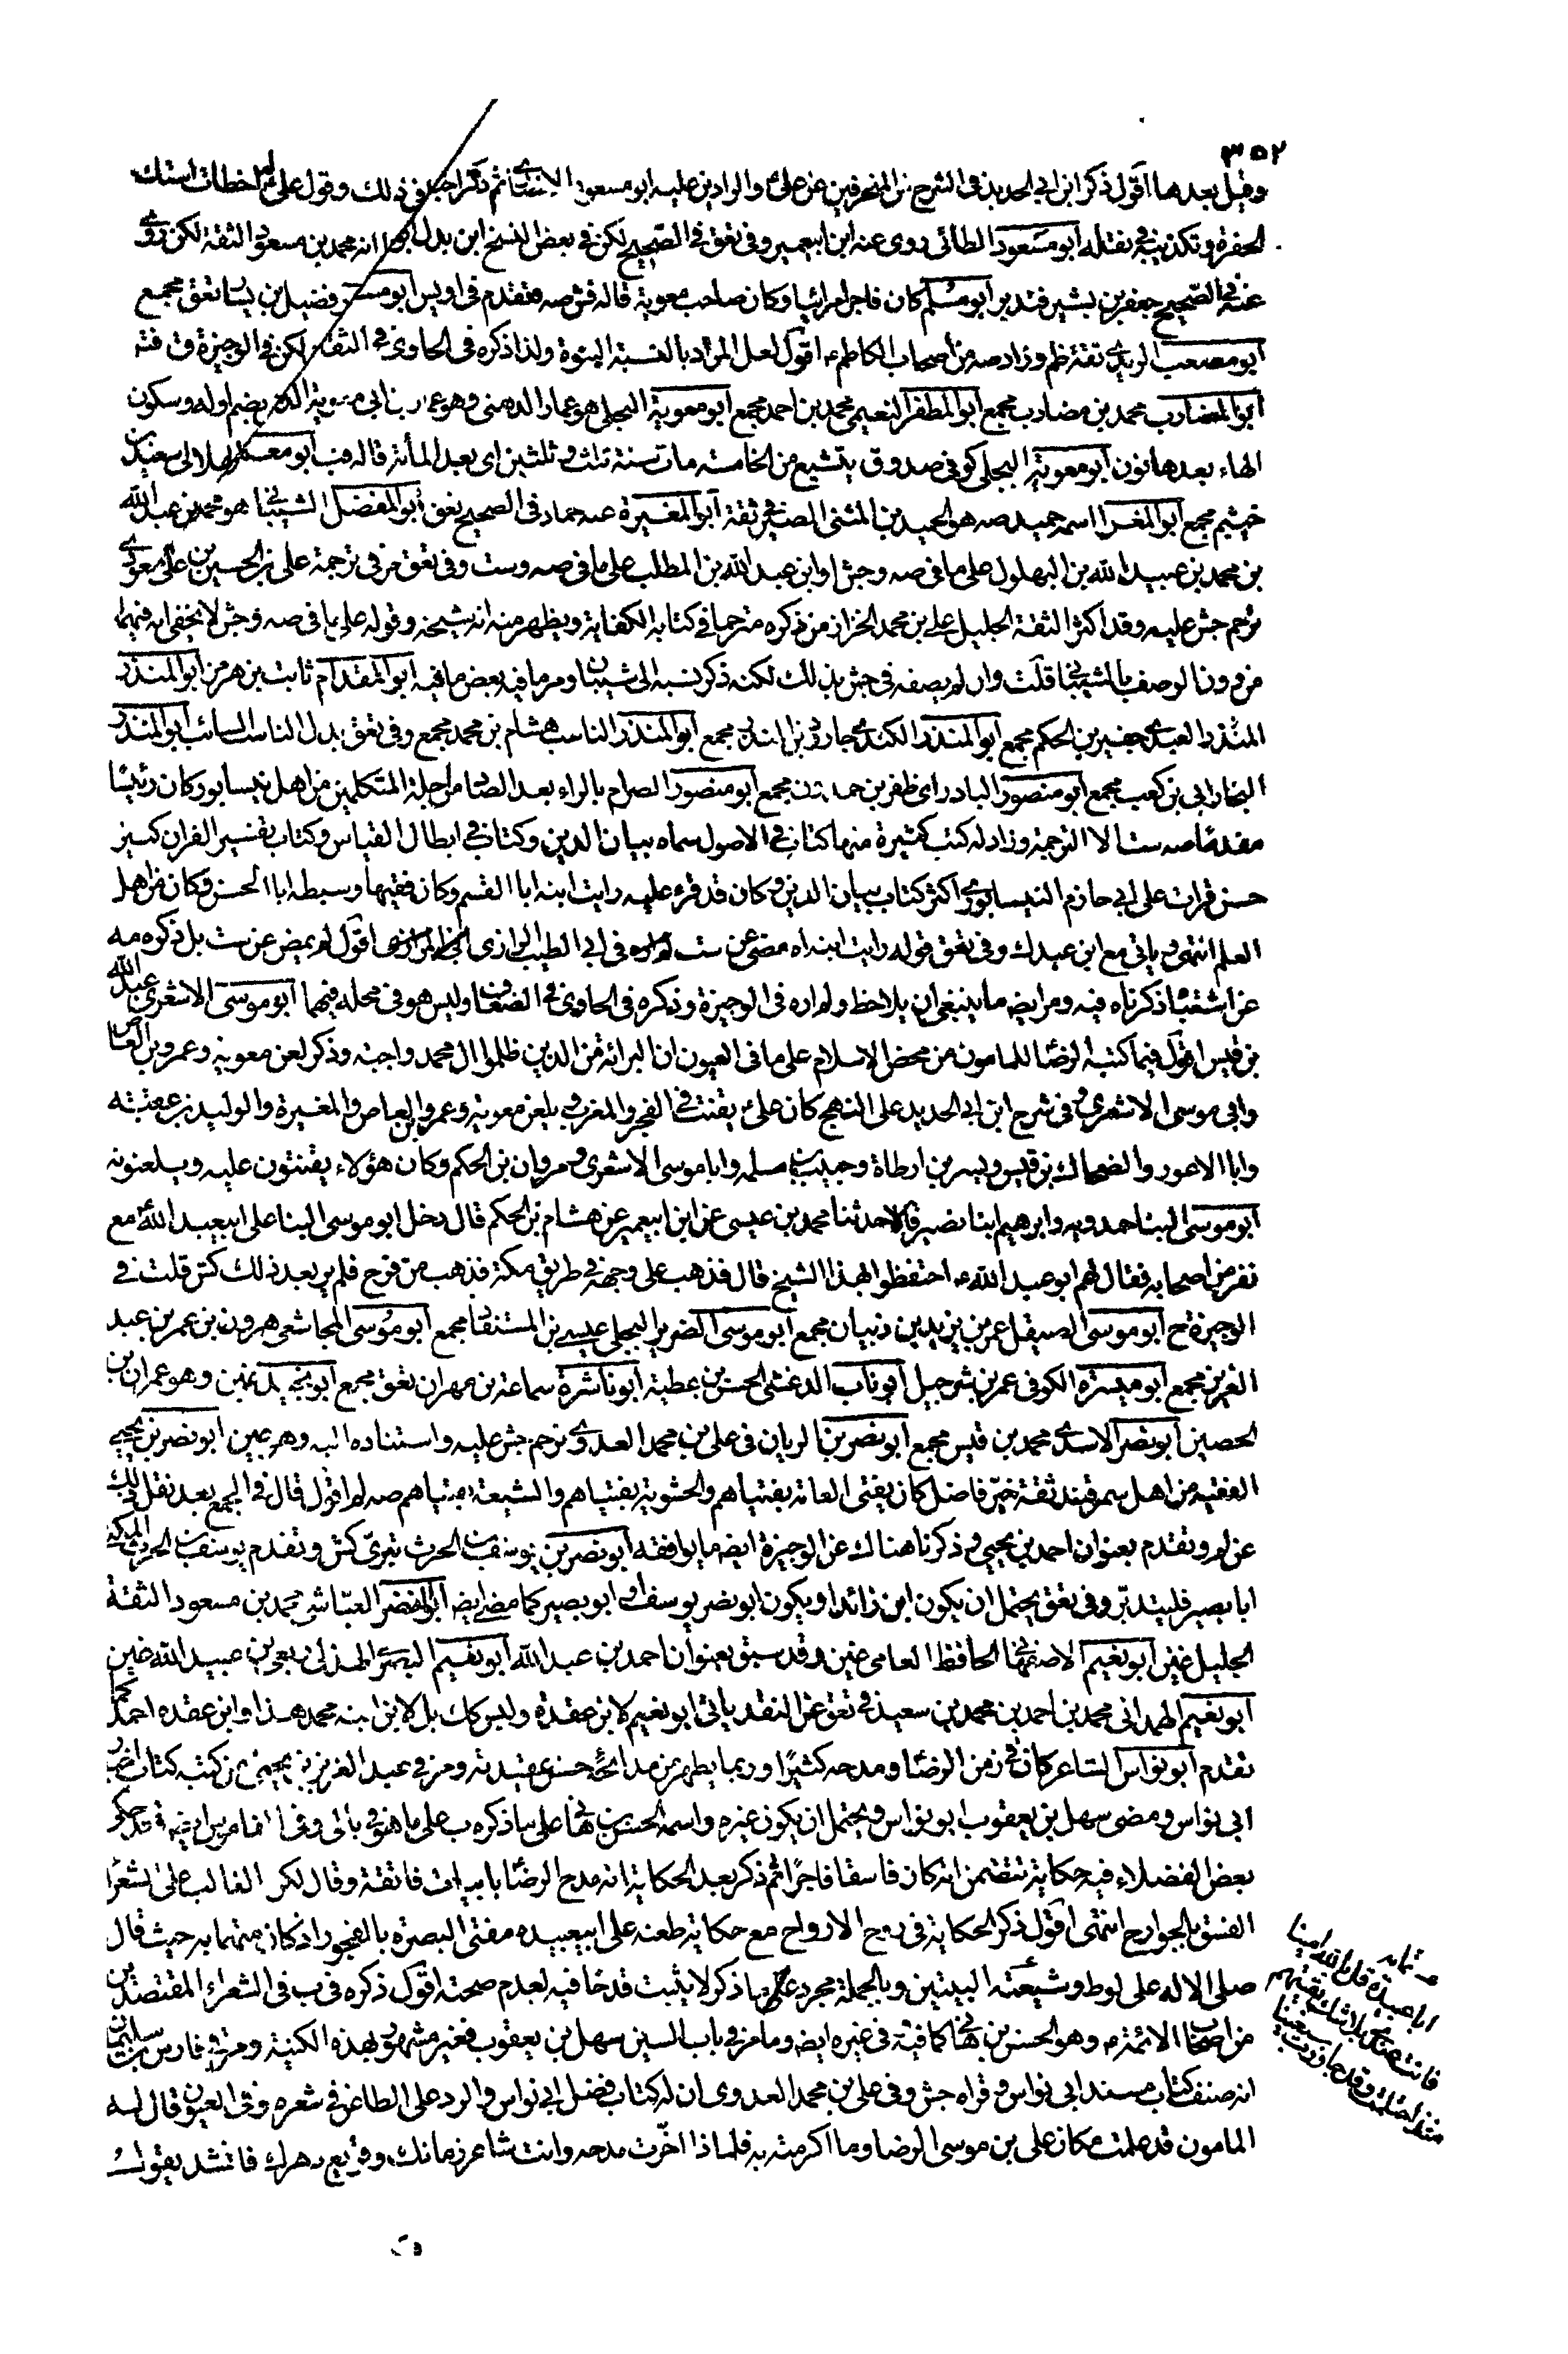 ٣٥٢
وقيل بعدها اقول ذكر ابن ابي الحديد في الشرح من المنحرفين عن علي والرادين عليه ابو مسعود ثم ذكر في ذلك وقول علي اخطات استك
الحفرة وتكذيبه في نقله ابو مسعود الطائى روى عنه ابن ابيعمير وفي تعق في الصحيح لكن في بعض النسخ ابن بدل انه محمد بن مسعود الثقة لكن روى
عنه في الصحيح جعفر بن بشير فتدبر ابو مسلم كان فاجرا مرائيا وكان صاحب معوية قاله فش صه وتقدم في اويس وفضيل بن يسار تعق مجمع
ابو مصعب الزيدى ثقة ظم وزاد صه من اصحاب الكاظم اقول لعل المراد بالنسبة البنوة ولذا ذكره في الحاوى في الثقات لكن في الوجيزة
ابو المضارب محمد بن مضارب مجمع ابو المظفر النعيمى محمد بن احمد مجمع ابو معوية البجلى هو عمار الدهنى وهو عمار بن ابي معوية بضم اوله وسكون
الهاء بعدها نون ابو معوية البجلى كوفى صدوق يتشيع من الخامسة مات سنة ثلث وثلثين اى بعد المأئة قاله ابو معمر الهلالى سعيد بن
خيثم مجمع ابو المغرا اسمه حميد صه هو الحميد بن المثنى الصيرفى ثقة ابو المغيرة عنه حماد في الصحيح تعق ابو المفضل الشيبانى هو محمد بن عبد الله
بن محمد بن عبيد الله بن البهلول على ما في صه وجش او ابن عبد الله بن المطلب على ما في صه وست وفي تعق مر في ترجمة علي بن الحسين بن علي
ترحم جش عليه وقد اكثر الثقة الجليل علي بن محمد الخزاز من ذكره مترحما في كتابه الكفاية ويظهر منه انه شيخه وقوله على ما في صه وجش لا يخفى انه فيهما
من دون الوصف بالشيبانى قلت وان لم يصفه في جش بذلك لكنه ذكر نسبه الى شيبان ومر ما فيه بعض ما فيه ابو المقدام ثابت بن هرمز ابو المنذر
المنذر العبدى جفير بن الحكم مجمع ابو المنذر الكندى جارود بن المنذر مجمع ابو المنذر الناسب هشام بن محمد مجمع وفي تعق بدل الناسب السائب ابو المنذر
النجار ابي بن كعب مجمع ابو منصور البادراى ظفر بن حمدون مجمع ابو منصور الصرام بالراء بعد الصاد من اجلة المتكلمين من اهل نيسابور كان رئيسا
مقدما صه ست الا الترجمة وزاد له كتب كثيرة منها كتاب في الاصول سماه بيان الدين وكتاب في ابطال القياس وكتاب تفسير القران كبير
حسن قرات على ابي حازم النيسابورى اكثر كتاب بيان الدين وكان قد قرء عليه رايت ابنه ابا القسم وكان فقيها وسبطه ابا الحسن وكان من اهل
العلم انتهى وياتي مع ابن عبدك وفي تعق قوله رايت ابنه اه مضى عن ست في ابي الطيب الرازى اقول لم يمض عن ست بل ذكره مه
عن ب ذكرناه فيه ومر ايضا ما ينبغى ان يلاحظ ولم اره في الوجيزة وذكره في الحاوى في الضعاف وليس هو في محله فيهما ابو موسى الاشعرى عبد الله
بن قيس اقول فيما كتبه الرضا للمامون من محض الاسلام على ما في العيون ان البرائة من الذين ظلموا ال محمد واجبة وذكر لعن معوية وعمرو بن العاص
وابي موسى الاشعرى وفي شرح ابن ابي الحديد على النهج كان علي يقنت في الفجر والمغرب ويلعن معوية وعمرو بن العاص والمغيرة والوليد بن عقبة
وابا الاعور والضحاك بن قيس وبسر بن ارطاة وحبيب بن مسلمه وابا موسى الاشعرى ومروان بن الحكم وكان هؤلاء يقنتون عليه ويلعنونه
ابو موسى البنا حمدويه وابرهيم ابنا نصير قالا حدثنا محمد بن عيسى عن ابن ابيعمير عن هشام بن الحكم قال دخل ابو موسى البنا على ابيعبد الله مع
نفر من اصحابه فقال لهم ابو عبد الله احتفظوا بهذا الشيخ قال فذهب على وجهه في طريق مكة فذهب من قزح فلم ير بعد ذلك كش قلت في
الوجيزة ح ابو موسى الصيقل عمر بن يزيد بن ذبيان مجمع ابو موسى الضرير البجلى عيسى بن المستفاد مجمع ابو موسى المجاشعى هرون بن عمر بن عبد
العزيز مجمع ابو ميسرة الكوفى عمر بن شرحبيل ابو ناب الدغشى الحسن بن عطية ابو ناشرة سماعة بن مهران تعق مجمع ابو نجيد وهو عمران بن
الحصين ابو نصر الاسدى محمد بن قيس مجمع ابو نصر بن الريان في علي بن محمد العدوى ترحم جش عليه واستناده اليه وهو عين ابو نصر بن يحيى
الفقيه من اهل سمرقند ثقة خير فاضل كان يفتى العامة بفتياهم والحشوية بفتياهم والشيعة بفتياهم صه لم اقول قال في المجمع بعد نقل ذلك
عن لم وتقدم بعنوان احمد بن يحيى وذكرنا هناك عن الوجيزة ايضا ما يوافقه ابو نصر بن يوسف بن الحرث بترى كش وتقدم يوسف بن الحرث المكنى
ابا بصير فليتدبر وفي تعق يحتمل ان يكون ابن زائدا ويكون ابو نصر يوسف او ابو بصير كما مضى ايضا ابو النضر العياشى محمد بن مسعود الثقة
الجليل غين ابو نعيم الاصفهانى الحافظ العامى غين وقد سبق بعنوان احمد بن عبد الله ابو نعيم البصرى الهذلى ربعى بن عبد الله غين
ابو نعيم الهمدانى محمد بن احمد بن محمد بن سعيد في تعق عن النقد ياتى ابو نعيم لابن عقدة وليس كك بل لابن ابنه محمد هذا وابن عقده احمد كما
تقدم ابو نواس الشاعر كان في زمن الرضا ومدحه كثيرا وربما يظهر من مدائحه حسن عقيدته ومر في عبد العزيز بن يحيى من كتبه كتاب اخبار
ابى نواس ومضى سهل بن يعقوب ابو نواس ويحتمل ان يكون غيره واسمه الحسن بن هانى على ما ذكره ب على ما هو في بالى
بعض الفضلاء فيه حكاية تتضمن انه كان فاسقا فاجرا ثم ذكر بعد الحكاية انه مدح الرضا بابيات فائقة وقال لكن الغالب على الشعرا
الفسق بالجوارح انتهى اقول ذكر الحكاية في روح الارواح مع حكاية طعنه على ابيعبيده مفتى البصرة بالفجور اذ كان متهما به حيث قال
صلى الاله على لوط وشيعته البيتين وبالجملة مجرد ما ذكر لا يثبت قدحا فيه لعدم صحته اقول ذكره في ب في الشعراء المقتصدين
من اصحاب الائمة وهو الحسن بن هانى كما فيه في غيره ايضا وما مر في باب السين سهل بن يعقوب فغير مشهور بهذه الكنية ومر في فارس بن سليمان
انه صنف كتاب مسند ابى نواس وقراه جش وفي علي بن محمد العدوى ان له كتاب فضل ابى نواس والرد على الطاعن في شعره وفي العيون قال له
المامون قد علمت مكان علي بن موسى الرضا وما اكرمته به فلماذا اخرت مدحه وانت شاعر زمانك وقريع دهرك فانشد يقول
تمامه
ابا عبيدة قل بالله امينا
فانت عندى بلا شك بقيتهم
منذ احتلمت وقد جاوزت سبعينا